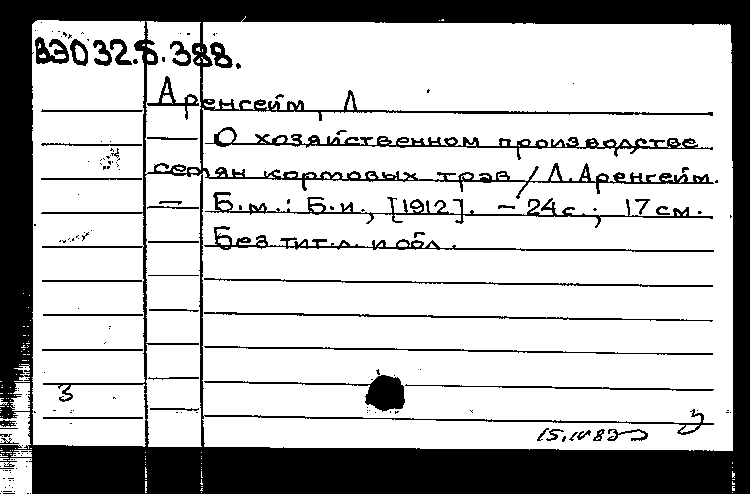 ВЭО 32.5.388.
Аренгейм, Л
О хозяйственном производстве
семян кормовых трав / Л. Аренгейм.
— Б.м.: Б.и., [1912]. – 24 с.; 17 см.
Без тит.л. и обл.
З